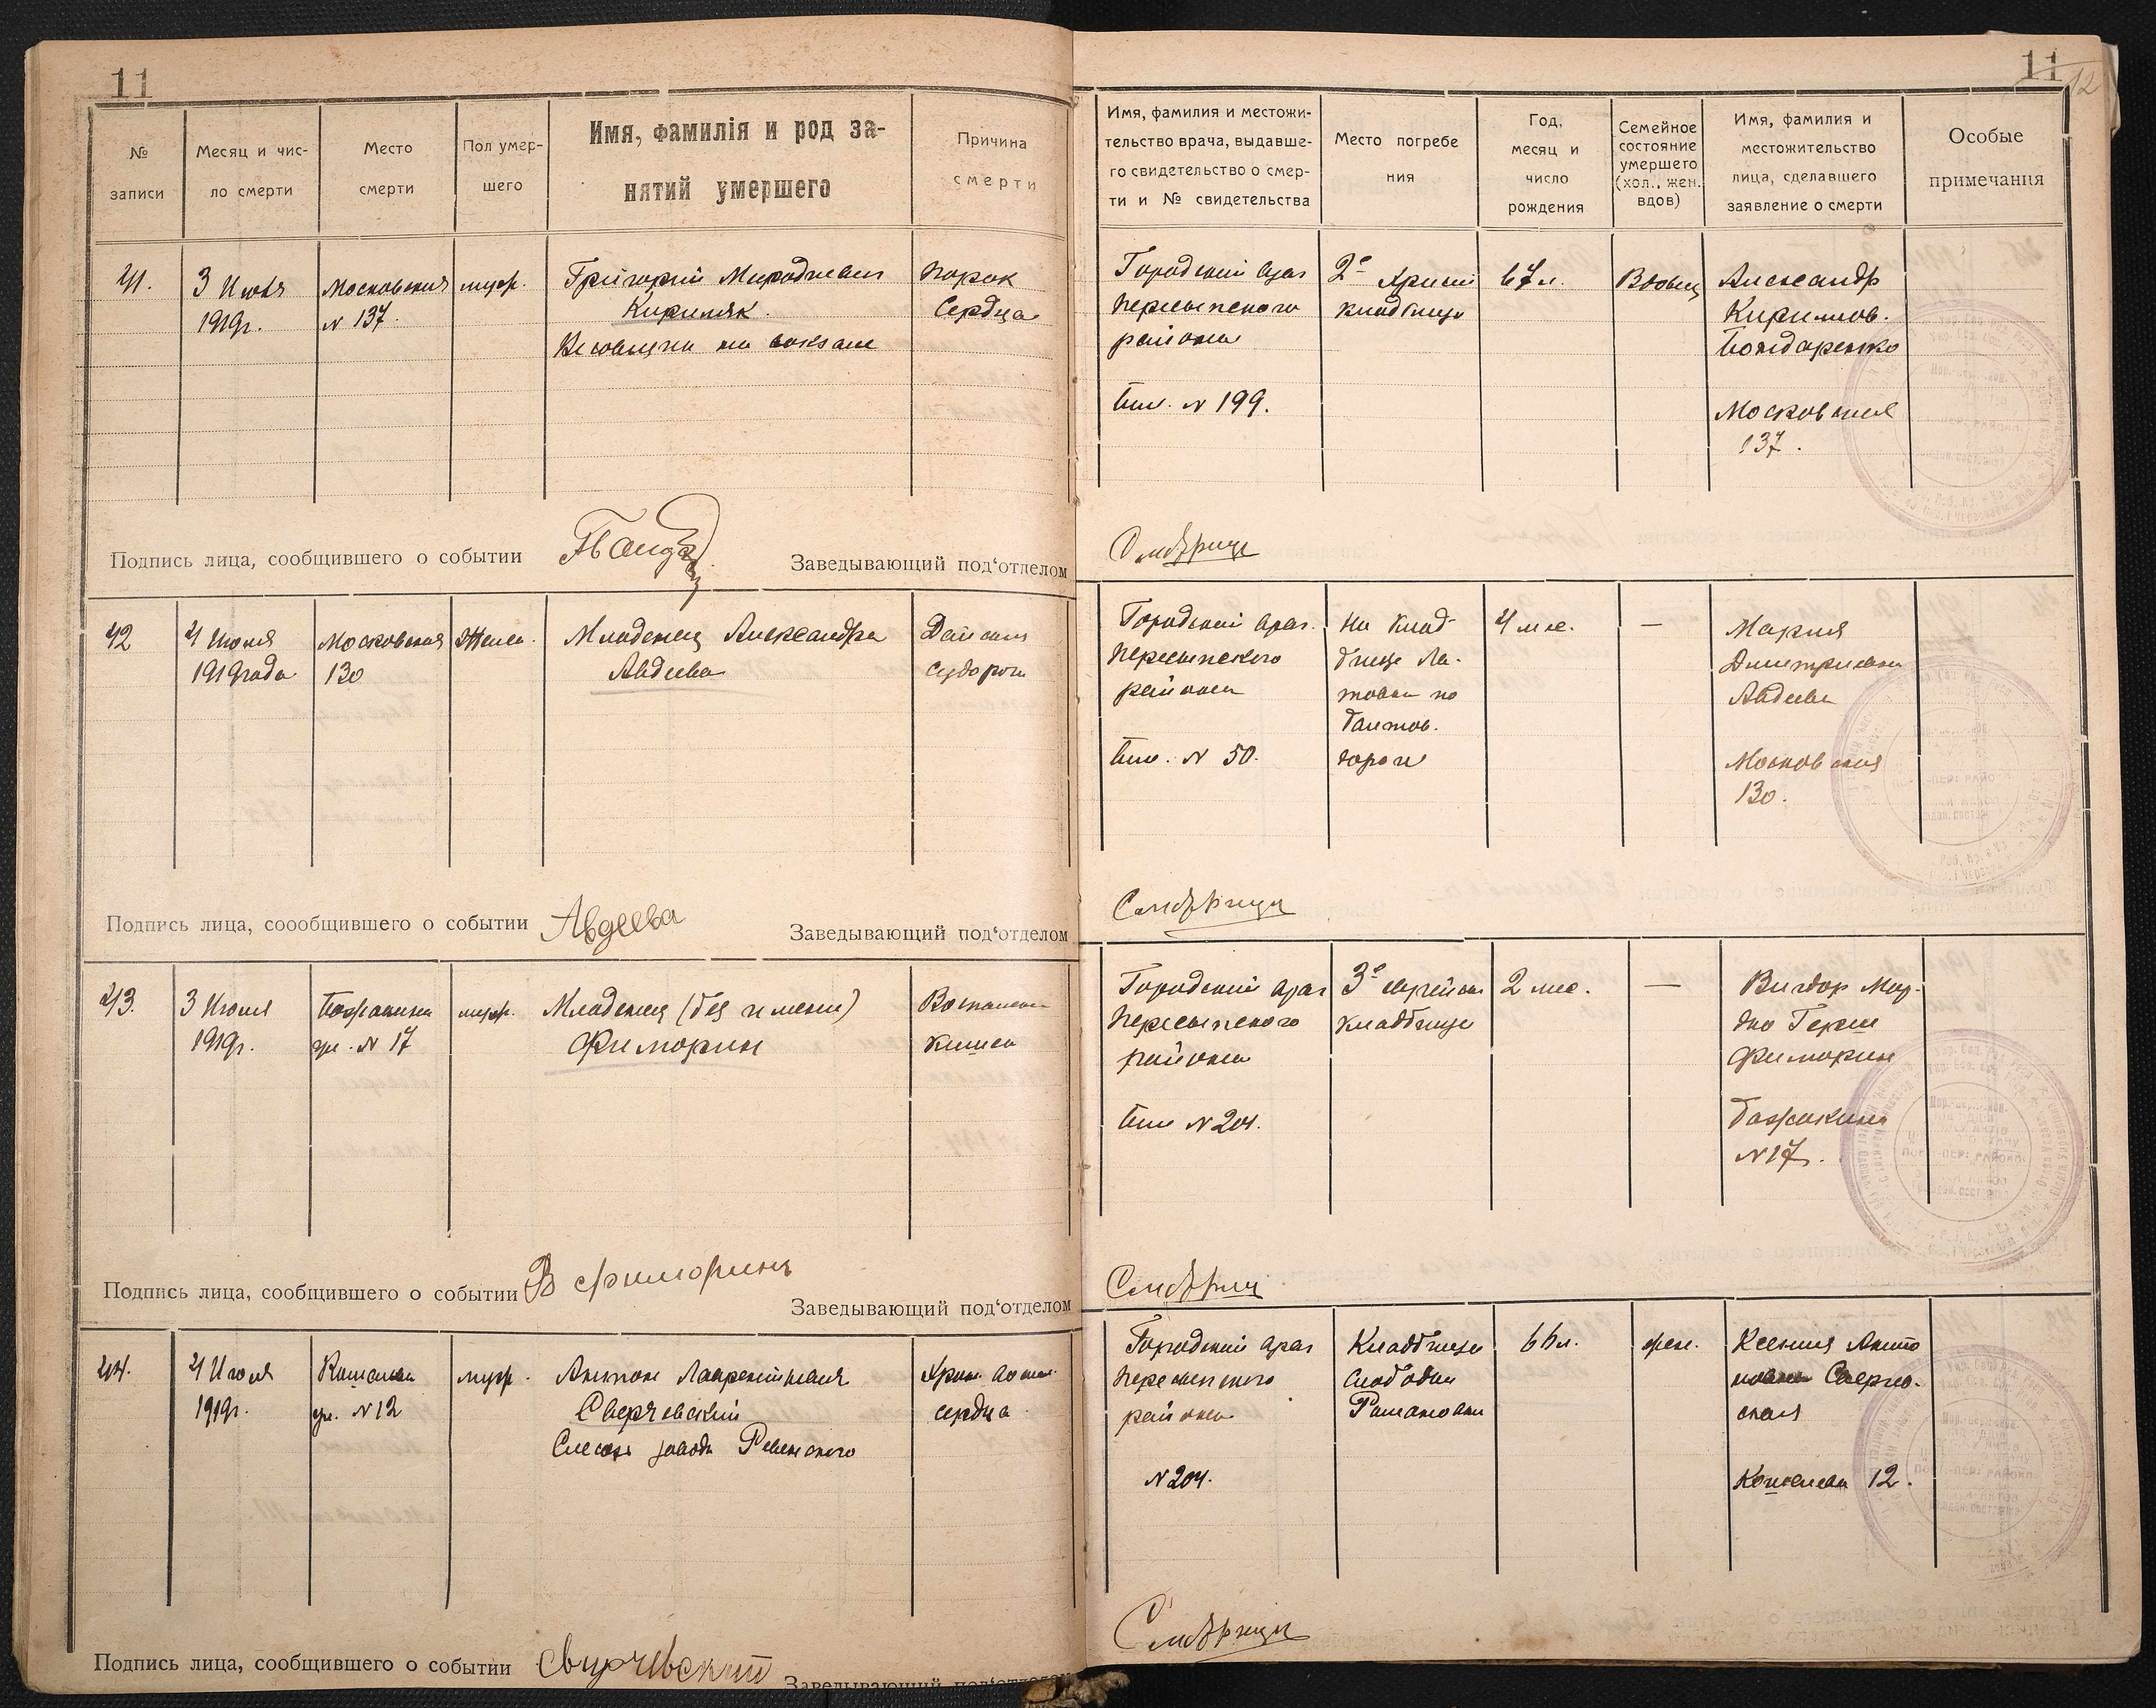 11
№
записи
Месяц и чис-
ло смерти
Место
смерти
Пол умер-
шего
Имя, фамилія и род за-
нятий умершего
Причина
смерти
41.
3 Июля
1919г.
Московская
№ 137.
муж.
Григорий
Кириляк.
на вокзале
Порок
Сердца
Подпись лица, сообщившего о событии
Заведывающий под‘отделом
42
4 Июля
1919года
Московская
130
Женс.
Младенец Александра
Авдеева
Подпись лица, соообщившего о событии Авдеева
Заведывающий под‘отделом
43.
3 Июля
1919г.
ул. № 17
муж.
Младенец (без имени)
Фиморин
Воспален
кишек
Подпись лица, сообщившего о событии В Фиморинъ
Заведывающий под‘отделом
44.
4 Июля
1919г.
ул. № 12
муж.
Антон
Сверчевский
Слесарь завода
Хрон. восп.
сердца
Подпись лица, сообщившего о событии Свирчевский
Заведывающий под‘отделом
11
12
Имя, фамилия и местожи-
тельство врача, выдавше-
го свидетельство о смер-
ти и № свидетельства
Место погребе
ния
Год,
месяц и
число
рождения
Семейное
состояние
умершего
(хол., жен.
вдов)
Имя, фамилия и
местожительство
лица, сделавшего
заявление о смерти
Особые
примечания
Городской врач
Пересыпского
района
Бил. № 199.
2е Христ
кладбище
67л.
Вдовец
Александр
Кирилов.
Бондаренко
Московская
137.
Городской врач.
Пересыпского
района
Бил. № 50.
На клад-
бище
дороге
4 мес.
—
Мария
Дмитриевна
Авдеева
Московская
130.
Городской врач
Пересыпского
района
Бил № 204.
3е еврейск
кладбище
2 мес.
—
Вигдор Мор-
дко Герш
Фиморин
№ 17.
Городской врач
Пересыпского
района
№ 204.
Кладбище
слободки
Романовки
66л.
жен.
Ксения Анто
ская
12.